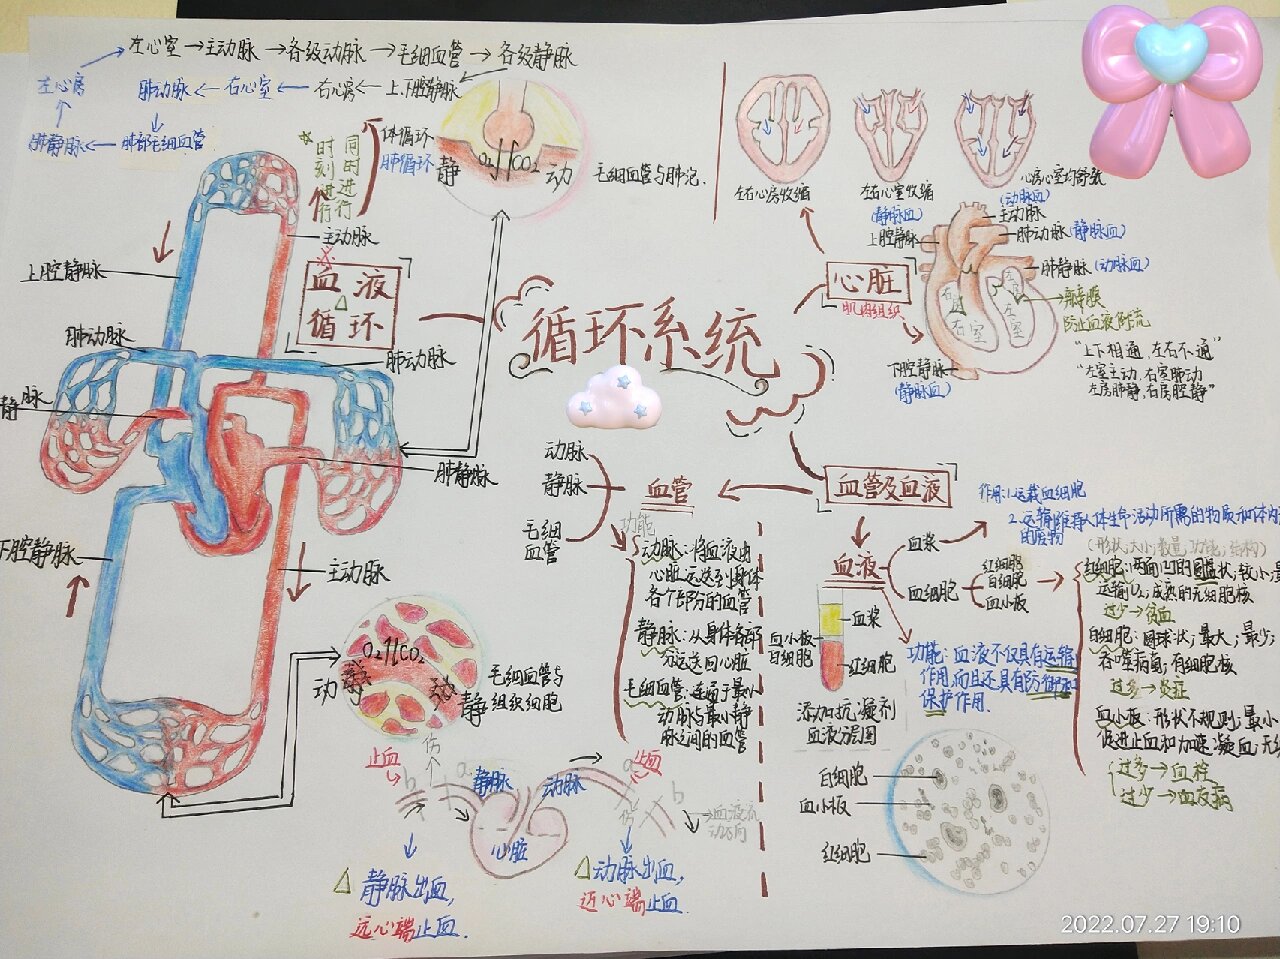 左心室→主动脉→各级动脉→毛细血管→各级静脉
左心房 肺动脉←右心室←右心房←上、下腔静脉
肺静脉←肺部毛细血管
同时进行
时刻进行
体循环
肺循环
静 O₂ CO₂ 动
毛细血管与肺泡.
主动脉
上腔静脉
血液
循环
肺动脉
肺动脉
静脉
肺静脉
下腔静脉
主动脉
O₂ CO₂
动
静
毛细血管与
组织细胞
循环系统
左右心房收缩
左右心室收缩
心房心室均舒张
(静脉血)
上腔静脉
(动脉血)
主动脉
肺动脉(静脉血)
肺静脉(动脉血)
心脏
肌肉组织
右室
左室
瓣膜
防止血液倒流
下腔静脉
(静脉血)
“上下相通,左右不通”
“左室主动,右室肺动
左房肺静,右房腔静”
动脉
静脉
毛细
血管
血管
血管及血液
功能
动脉:将血液由
心脏运送到身体
各个部分的血管
静脉:从身体各部
分运送回心脏
毛细血管:连通于最小
动脉与最小静
脉之间的血管
作用:1.运载血细胞
2.运输维持人体生命活动所需的物质和体内
的废物
血液
血浆
血细胞
红细胞
白细胞
血小板
(形状,大小,数量,功能,结构)
红细胞:两面凹的圆盘状;较小;最
运输O₂;成熟的无细胞核
过少→贫血
白细胞:圆球状;最大;最少;
吞噬病菌;有细胞核
过多→炎症
血小板:形状不规则;最小
促进止血和加速凝血;无
过多→血栓
过少→血友病
血浆
血小板
白细胞
红细胞
添加抗凝剂
血液分层图
功能:血液不仅具有运输
作用,而且还具有防御和
保护作用.
白细胞
血小板
红细胞
止血
伤
b
a
静脉
动脉
a
止血
伤
b
血液流
动方向
心脏
静脉出血,
远心端止血.
动脉出血,
近心端止血.
2022.07.27 19:10